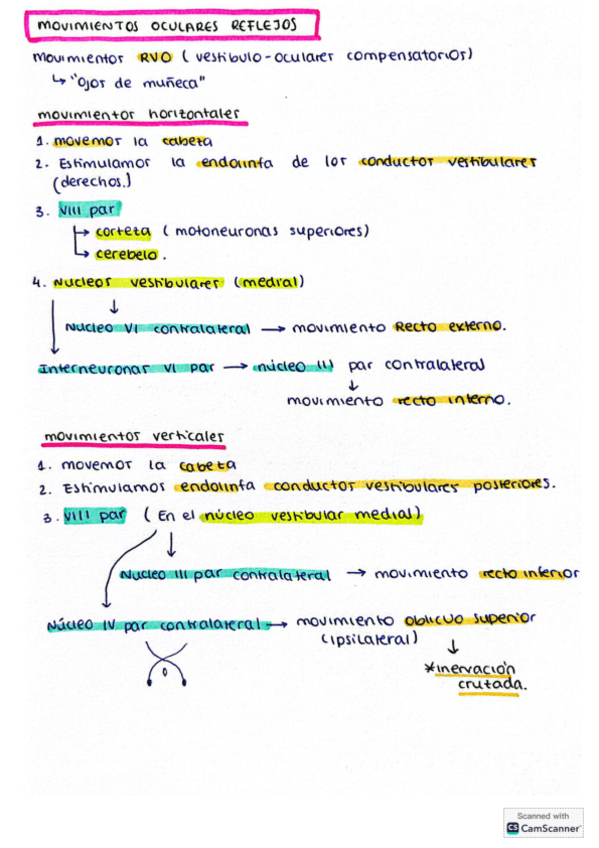 MOVIMIENTOS OCULARES REFLEJOS
Movimientos RVO ( vestibulo-oculares compensatorios)
↳ "Ojos de muñeca"
movimientos horizontales
1. movemos la cabeza
2. Estimulamos la endolinfa de los conductos vestibulares
(derechos.)
3. VIII par
→ corteza ( motoneuronas superiores)
→ cerebelo.
4. Nucleos vestibulares (medial)
↓
Nucleo VI contralateral → movimiento Recto externo.
Interneuronas VI par → núcleo III par contralateral
↓
movimiento recto interno.
movimientos verticales
1. movemos la cabeza
2. Estimulamos endolinfa conductos vestibulares posteriores.
3. VIII par ( En el núcleo vestibular medial)
Nucleo III par contralateral → movimiento recto inferior
Núcleo IV par contralateral → movimiento oblicuo superior
(ipsilateral) ↓
*inervación
cruzada.
Scanned with
CS CamScanner